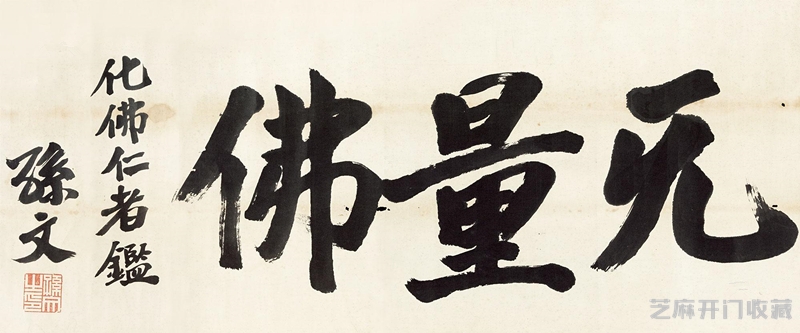 无量佛
化佛仁者鑑
孫文
孫文之印
芝麻开门收藏